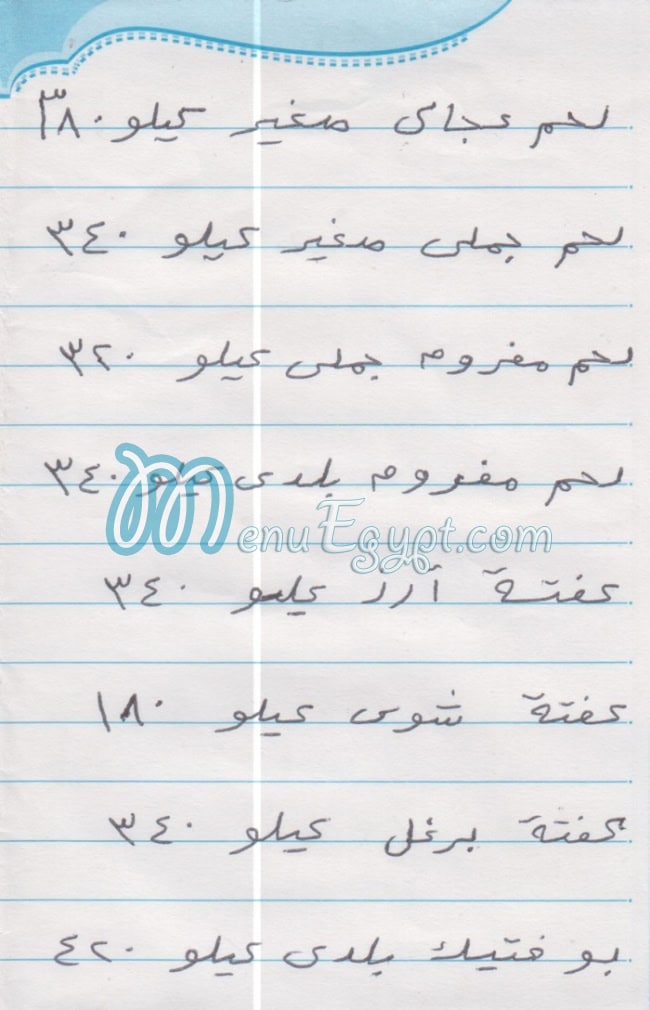 لحم عجالى صغير كيلو ٣٨٠
لحم جملى صغير كيلو ٣٤٠
لحم مفروم جملى كيلو ٣٢٠
لحم مفروم بلدى كيلو ٣٤٠
MenuEgypt.com
كفتة أرز كيلو ٣٤٠
كفتة شوى كيلو ١٨٠
كفتة برغل كيلو ٣٤٠
بوفتيك بلدى كيلو ٤٢٠